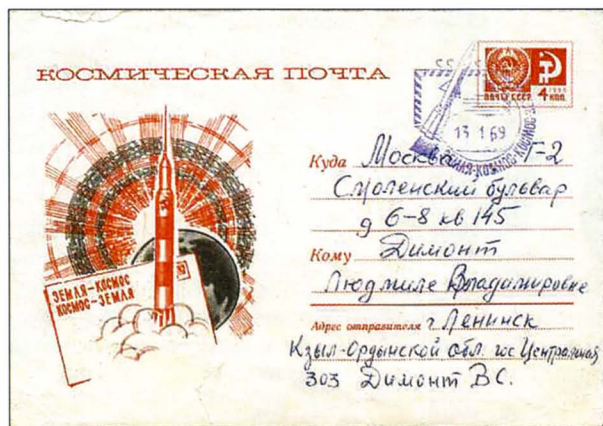 КОСМИЧЕСКАЯ ПОЧТА
ПОЧТА СССР 4 КОП.
13 1 69
ЗЕМЛЯ-КОСМОС-КОСМОС-ЗЕ
Куда Москва Г-2
Смоленский бульвар
д 6-8 кв 145
Кому Димонт
Людмиле Владимировне
ЗЕМЛЯ-КОСМОС
КОСМОС-ЗЕМЛЯ
Адрес отправителя г. Ленинск
Кзыл-Ордынской обл. гос Центральная
303 Димонт В С.